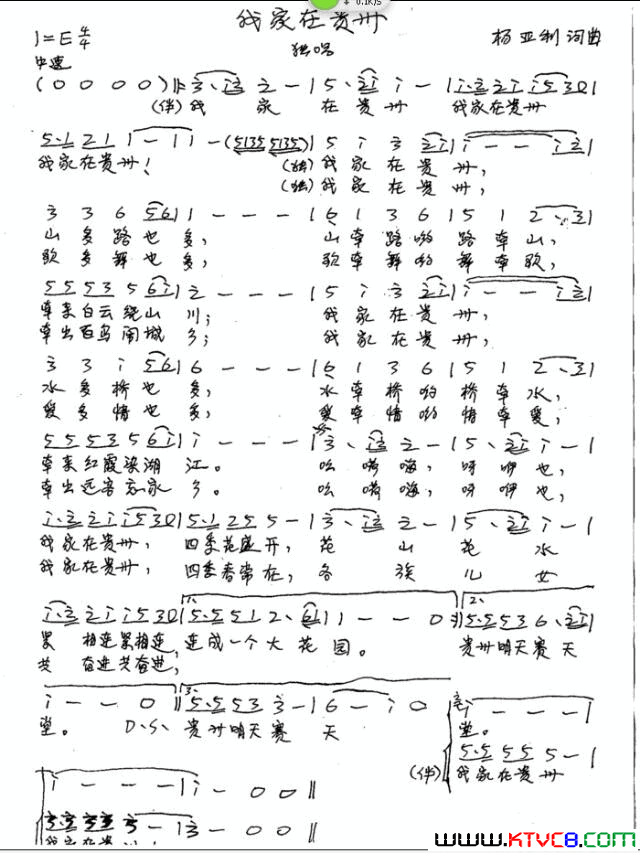 0.1K/s
我家在贵州
1=E 4/4
独唱
杨亚利词曲
中速
(0 0 0 0)‖: 3̇· i̇3̇ 2̇ - | 5· 2̇i̇ i̇ - | i̇·3̇ 2̇i̇ i̇5 30 |
(伴)我 家 在贵州 我家在贵州
5·1 21 1 - | 1 1 - (5135 5135) | 5 i̇ 3̇ 2̇i̇ | i̇ - - i̇2̇ |
我家在贵州! (独)我家在贵州,
(独)我家在贵州,
3̇ 3 6 56 | 1 - - - | 6 1 3 6 | 5 1 2· 3 |
山多路也多, 山牵路哟路牵山,
歌多舞也多, 歌牵舞哟舞牵歌,
55 53 5 6i̇ | 2̇ - - - | 5 i̇ 3̇ 2̇i̇ | i̇ - - i̇2̇ |
牵来白云绕山川; 我家在贵州,
牵出百鸟闹城乡; 我家在贵州,
3̇ 3 i̇ 56 | 6 - - - | 6 1 3 6 | 5 1 2· 3 |
水多桥也多, 水牵桥哟桥牵水,
爱多情也多, 爱牵情哟情牵爱,
55 53 5 6i̇ | i̇ - - - | 3̇· i̇3̇ 2̇ - | 5· 2̇i̇ i̇ - |
牵来红霞染湖江。 吆嗬嗨,呀咿也,
牵出远客忘家乡。 吆嗬嗨,呀咿也,
i̇·3̇ 2̇i̇ i̇5 30 | 5·1 25 5 - | 3̇· i̇3̇ 2̇ - | 5· 2̇i̇ i̇ - |
我家在贵州, 四季花盛开, 花 山 花 水
我家在贵州, 四季春常在, 各 族 儿 女
i̇·3̇ 2̇i̇ i̇5 30 | 1. 5·5 51 2· 61 | 1 - - 0 :‖ 2. 5·5 53 6· 2̇i̇ |
累相连累相连,连成一个大花园。 贵州明天赛天
共奋进共奋进,
i̇ - - 0 ‖ 3. 5·5 53 3 - | 6 - i̇ 0 | i̇ - - - |
堂。 D.S. 贵州明天赛 天 堂。
5·5 55 5 - |
(伴)我家在贵州
i̇ - - - | i̇ - 0 0 ‖
3·3 33 3 - | 3 - 0 0 ‖
我家在贵州!
www.KTVC8.com